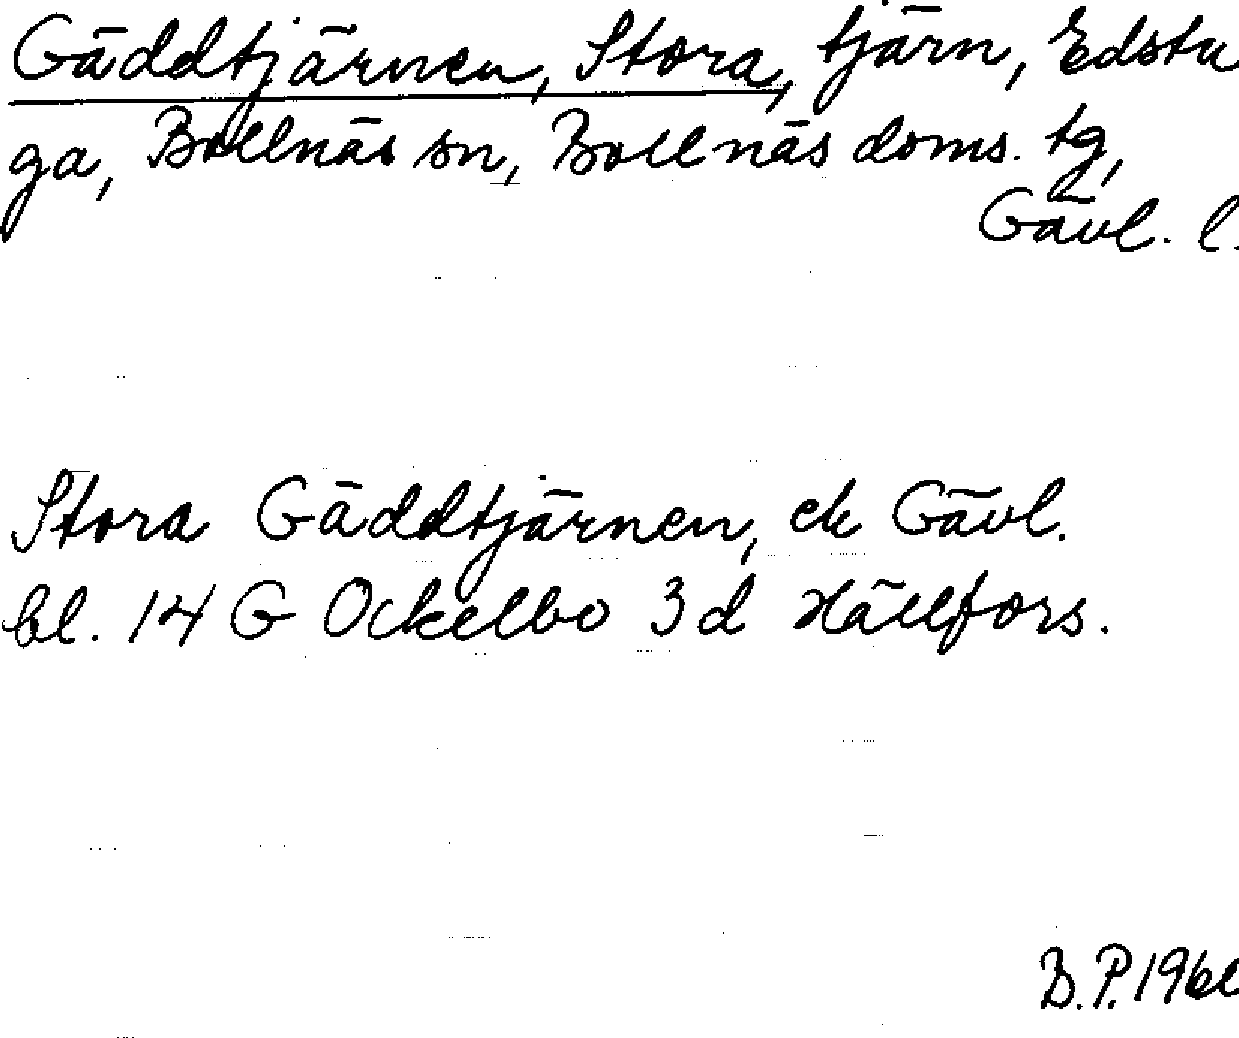 Gäddtjärnen, Stora, tjärn, Edstu
ga, Bollnäs sn, Bollnäs doms. tg,
Gävl. l.
Stora Gäddtjärnen, ek Gävl.
bl. 14 G Ockelbo 3d Hällfors.
B.P.